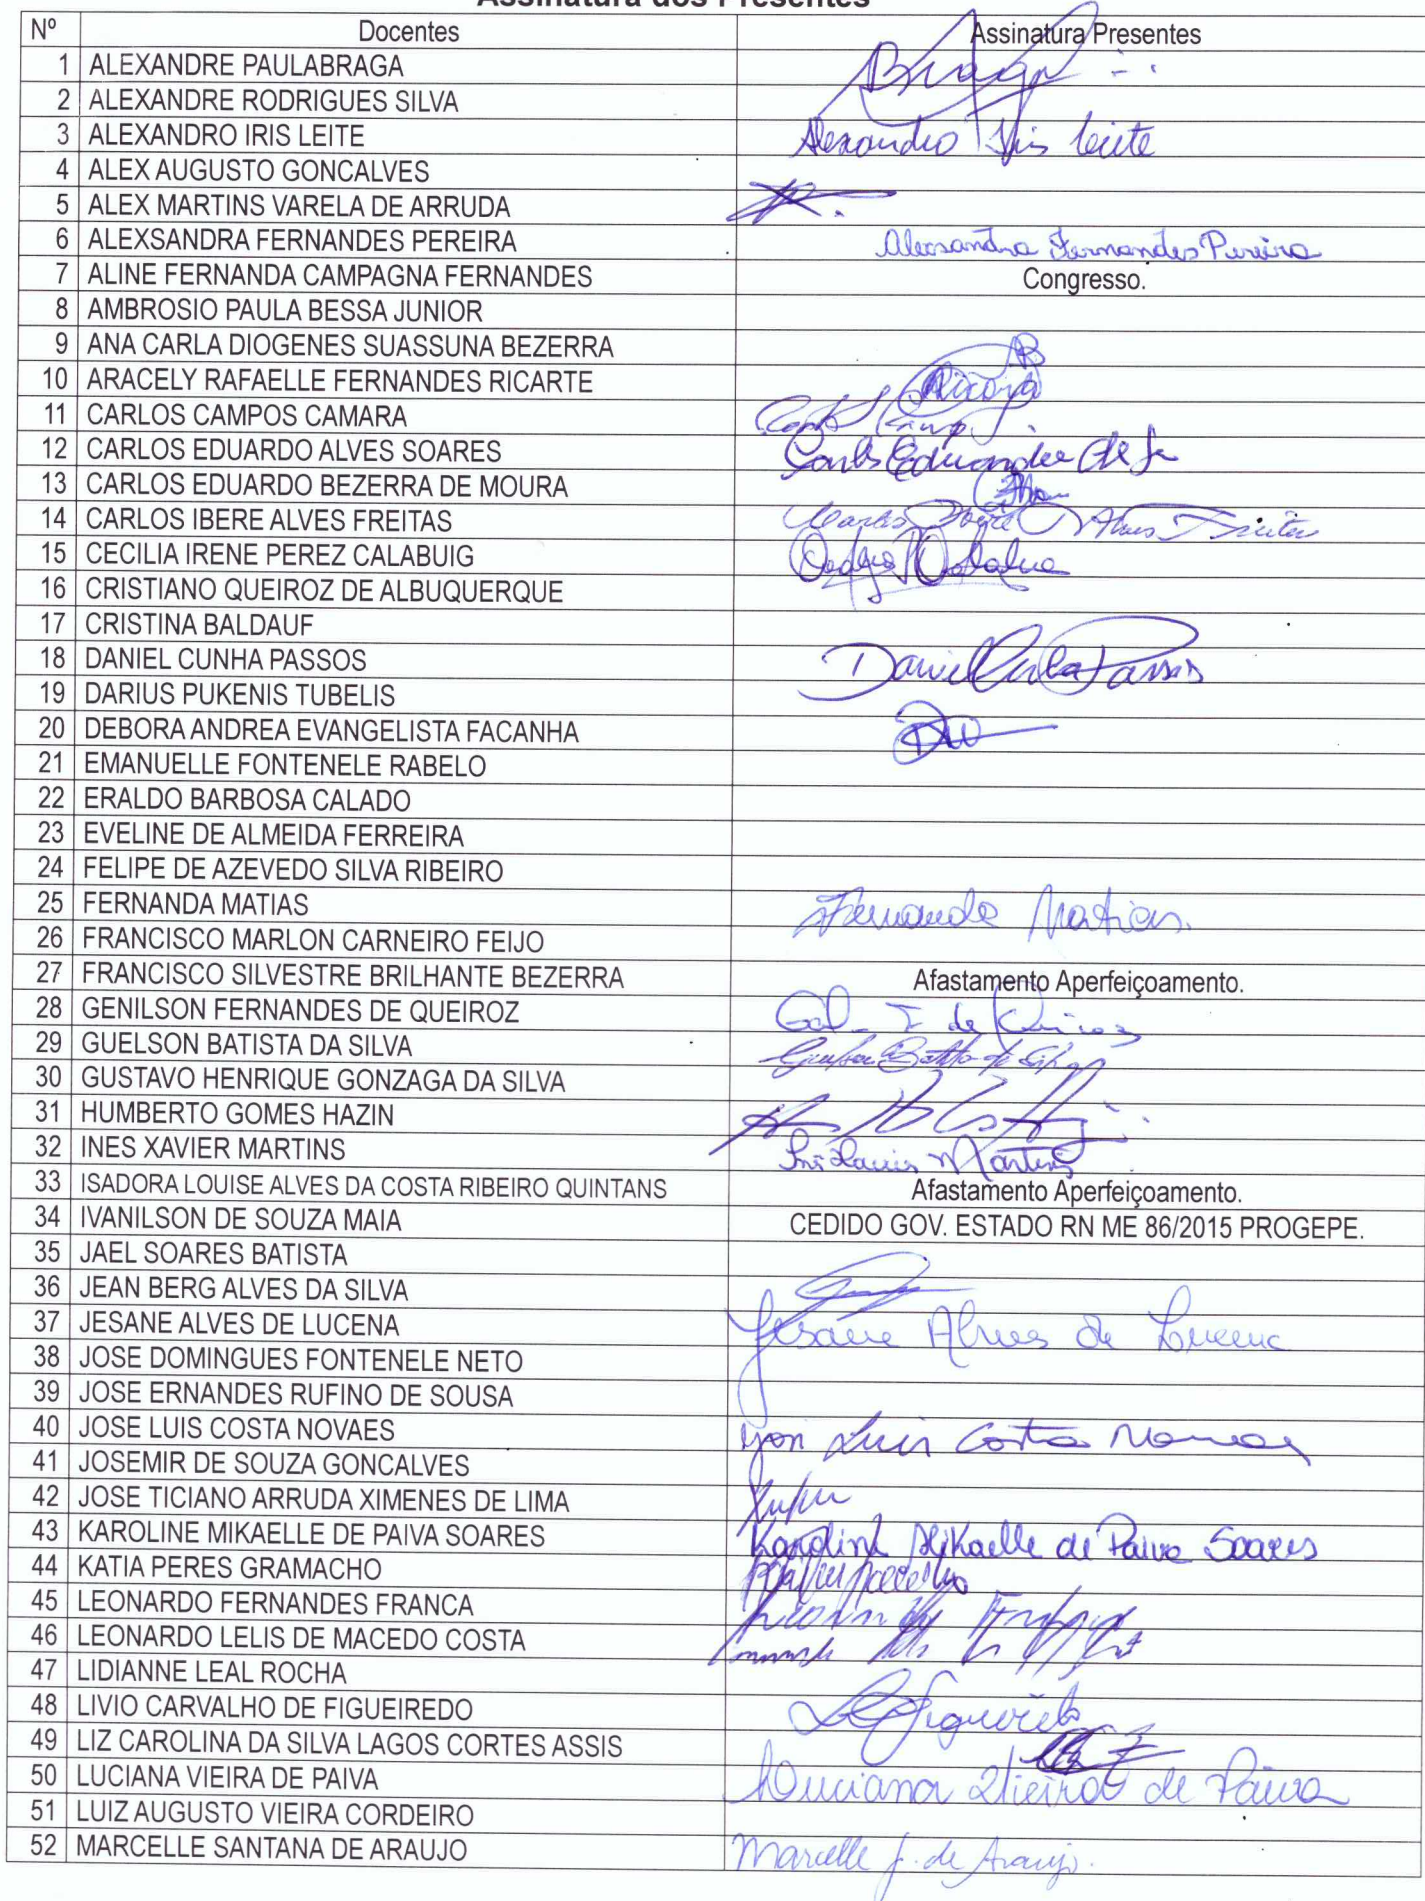 Assinatura dos Presentes
Nº Docentes Assinatura Presentes
1 ALEXANDRE PAULABRAGA Braga
2 ALEXANDRE RODRIGUES SILVA
3 ALEXANDRO IRIS LEITE Alexandro Iris Leite
4 ALEX AUGUSTO GONCALVES
5 ALEX MARTINS VARELA DE ARRUDA
6 ALEXSANDRA FERNANDES PEREIRA Alexsandra Fernandes Pereira
7 ALINE FERNANDA CAMPAGNA FERNANDES Congresso.
8 AMBROSIO PAULA BESSA JUNIOR
9 ANA CARLA DIOGENES SUASSUNA BEZERRA
10 ARACELY RAFAELLE FERNANDES RICARTE
11 CARLOS CAMPOS CAMARA
12 CARLOS EDUARDO ALVES SOARES Carlos Eduardo
13 CARLOS EDUARDO BEZERRA DE MOURA
14 CARLOS IBERE ALVES FREITAS Carlos Ibere Alves Freitas
15 CECILIA IRENE PEREZ CALABUIG
16 CRISTIANO QUEIROZ DE ALBUQUERQUE
17 CRISTINA BALDAUF
18 DANIEL CUNHA PASSOS Daniel Cunha Passos
19 DARIUS PUKENIS TUBELIS
20 DEBORA ANDREA EVANGELISTA FACANHA
21 EMANUELLE FONTENELE RABELO
22 ERALDO BARBOSA CALADO
23 EVELINE DE ALMEIDA FERREIRA
24 FELIPE DE AZEVEDO SILVA RIBEIRO
25 FERNANDA MATIAS Fernanda Matias.
26 FRANCISCO MARLON CARNEIRO FEIJO
27 FRANCISCO SILVESTRE BRILHANTE BEZERRA Afastamento Aperfeiçoamento.
28 GENILSON FERNANDES DE QUEIROZ F de Queiroz
29 GUELSON BATISTA DA SILVA Guelson Batista da Silva
30 GUSTAVO HENRIQUE GONZAGA DA SILVA
31 HUMBERTO GOMES HAZIN
32 INES XAVIER MARTINS Inês Xavier Martins
33 ISADORA LOUISE ALVES DA COSTA RIBEIRO QUINTANS Afastamento Aperfeiçoamento.
34 IVANILSON DE SOUZA MAIA CEDIDO GOV. ESTADO RN ME 86/2015 PROGEPE.
35 JAEL SOARES BATISTA
36 JEAN BERG ALVES DA SILVA
37 JESANE ALVES DE LUCENA Jesane Alves de Lucena
38 JOSE DOMINGUES FONTENELE NETO
39 JOSE ERNANDES RUFINO DE SOUSA
40 JOSE LUIS COSTA NOVAES José Luis Costa Novaes
41 JOSEMIR DE SOUZA GONCALVES
42 JOSE TICIANO ARRUDA XIMENES DE LIMA
43 KAROLINE MIKAELLE DE PAIVA SOARES Karoline Mikaelle de Paiva Soares
44 KATIA PERES GRAMACHO
45 LEONARDO FERNANDES FRANCA
46 LEONARDO LELIS DE MACEDO COSTA
47 LIDIANNE LEAL ROCHA
48 LIVIO CARVALHO DE FIGUEIREDO Figueirêdo
49 LIZ CAROLINA DA SILVA LAGOS CORTES ASSIS
50 LUCIANA VIEIRA DE PAIVA Luciana Vieira de Paiva
51 LUIZ AUGUSTO VIEIRA CORDEIRO
52 MARCELLE SANTANA DE ARAUJO Marcelle S. de Araujo.